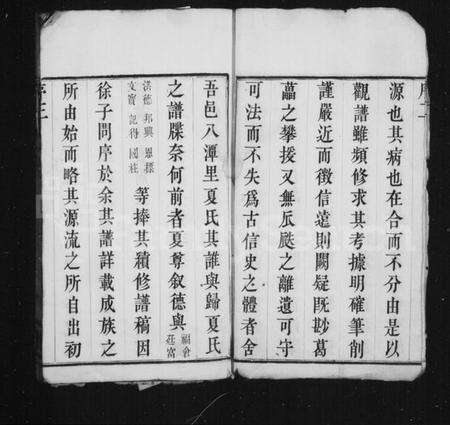 源也其病也在合而不分由是以
觀譜雖頻修求其考據明確筆削
謹嚴近而徵信遠則闕疑既尠葛
藟之攀援又無瓜瓞之離遺可守
可法而不失為古信史之體者舍
吾邑八潭里夏氏其誰與歸夏氏
之譜牒奈何前者夏尊叙德與
福會
莊富
洪德 邦興 恩標
文寶 記得 國柱
等捧其積修譜稿因
徐子問序於余其譜詳載成族之
所由始而略其源流之所自出初